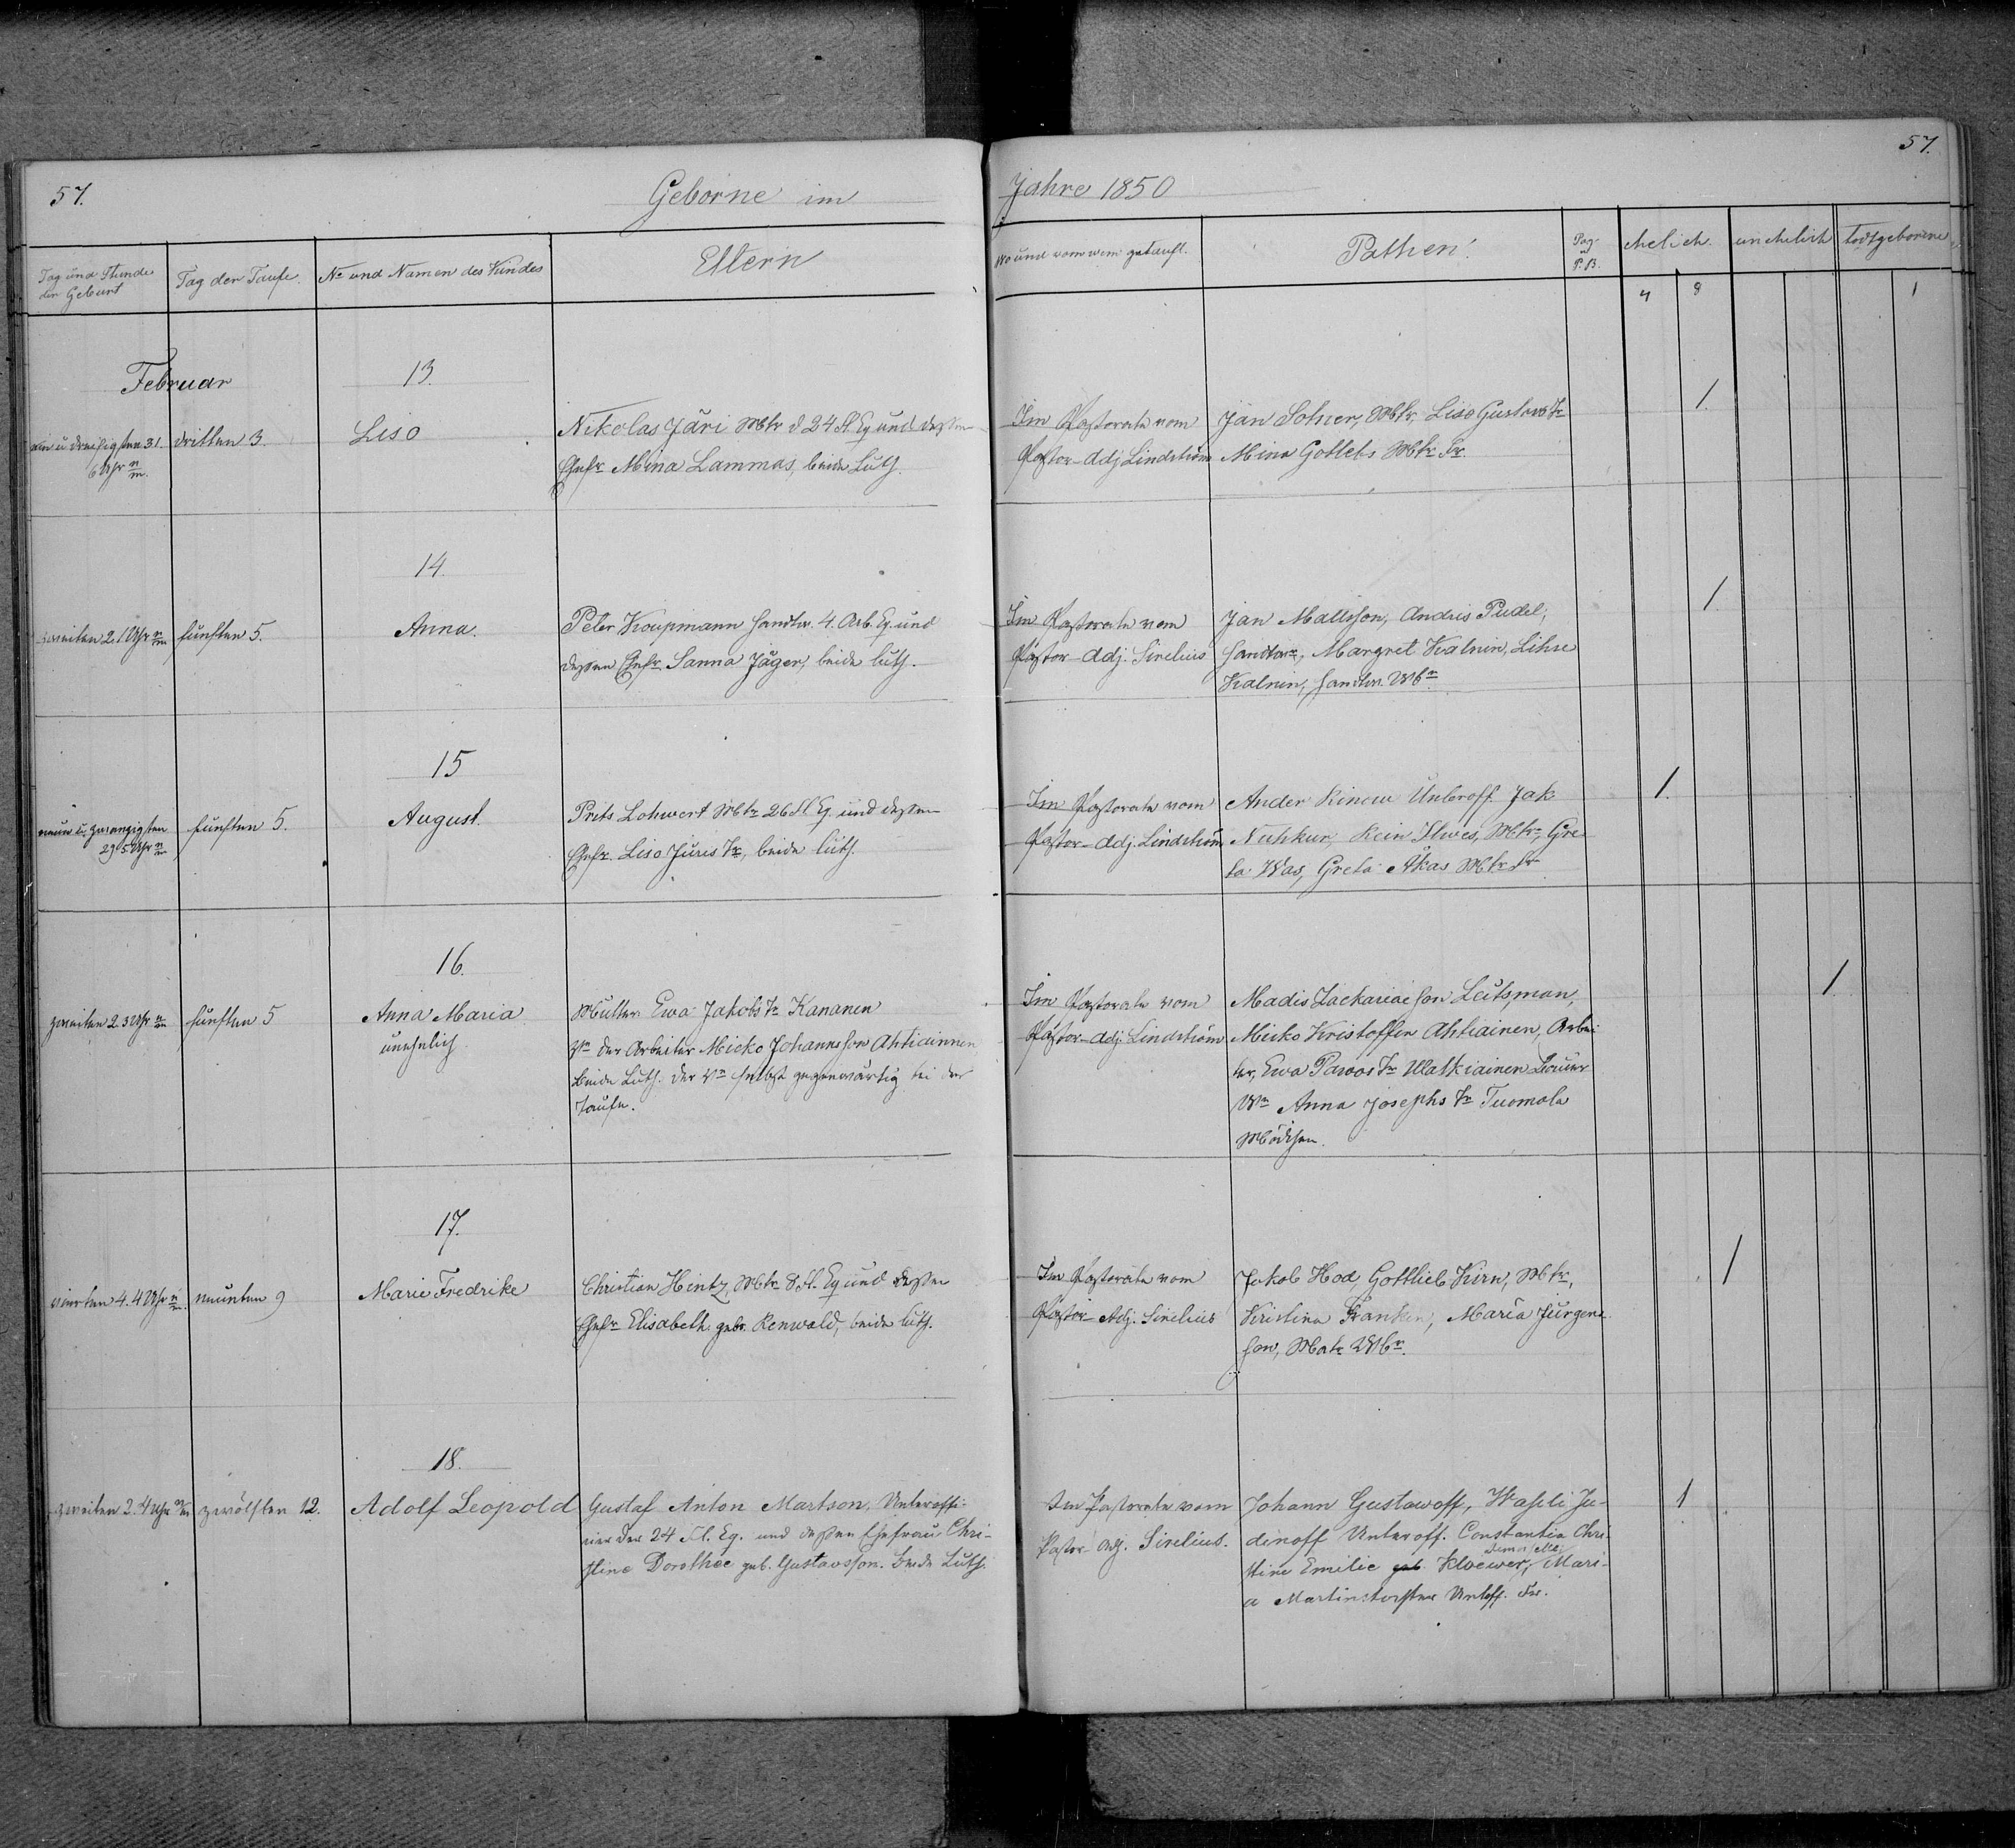 57.
Geborne im
Jahre 1850
57.
Tag und Stunde der Geburt
Tag der Taufe.
No und Namen des Kindes
Eltern
Wo und vom wem getauft.
Pathen.
Pag. P.B.
ehelich.
unehelich
todtgeborene
4 8 1
Februar
13.
ein u dreißigsten 31. 6 Uhr n/m.
dritten 3.
Liso
Nikolas Järi Mtr d 24 Fl. Eq und dessen
Ehefr Mina Lammas, beide Luth.
Im Pastorate vom
Pastor-Adj Lindström
Jän Sohner, Mtr, Liso Gustavs Tr
Mina Gotlebs Mtr Fr.
1.
14.
zweiten 2. 1 Uhr n/m
fünften 5.
Anna.
Peter Koupmann Handw. 4. Arb. Eq und
dessen Ehefr. Sanna Jäger, beide luth.
Im Pastorate vom
Pastor-Adj. Sirelius
Jan Mallison, Andres Pudel,
Handwr, Margret Kalnin, Lihse
Kalnin, Handw. Wbr.
1
15
neun u. zwanzigsten
29. 5 Uhr n/m
fünften 5.
August.
Prits Lohwert Mtr 26 Fl Eq. und dessen
Ehefr. Liso Jüris Tr, beide luth.
Im Pastorate vom
Pastor-Adj. Lindström
Ander Rinew Unteroff. Jak
Nuhkur, Rein Ilwes, Mtr, Gre
ta Was, Greta Åkas Mtr Fr
1.
16.
zweiten 2. 3 Uhr n/m
fünften 5
Anna Maria
unehelich
Mutter Ewa Jakobs Tr Kananen
Vr der Arbeiter Micko Johannson Ahtiainnen
beide Luth. der Vr selbst gegenwärtig bei der
Taufe.
Im Pastorate vom
Pastor-Adj. Lindström
Madis Zackariaeson Leutsman,
Micko Kristoffer Ahtiainen, Arbei
ter, Ewa Pawos Tr Matkiainen Bauer
Wr Anna Josephs Tr Tuomala
Mädchen.
1.
17.
vierten 4. 4 Uhr n/m.
neunten 9
Marie Fredrike
Christian Hintz, Mtr 8 Fl. Eq und dessen
Ehefr Elisabeth geb. Renwald, beide luth.
Im Pastorate vom
Pastor-Adj. Sirelius
Jakob Hod, Gottlieb Kirn, Mtr,
Kristina Franken, Maria Jürgen
son, Matr Wbr.
1
18.
zweiten 2. 4 Uhr n/m
zwölften 12.
Adolf Leopold
Gustaf Anton Martson, Unteroffi-
cier der 24 Fl. Eq. und dessen Ehefrau Chri-
stine Dorothée geb. Gustavsson. beide Luth.
Im Pastorate vom
Pastor-Adj. Sirelius.
Johann Gustawoff, Wasili Ju-
dinoff Unteroff. Constantia Chri-
stine Emilie geb. Kloewer, Mari-
a Unteroff. Fr.
1